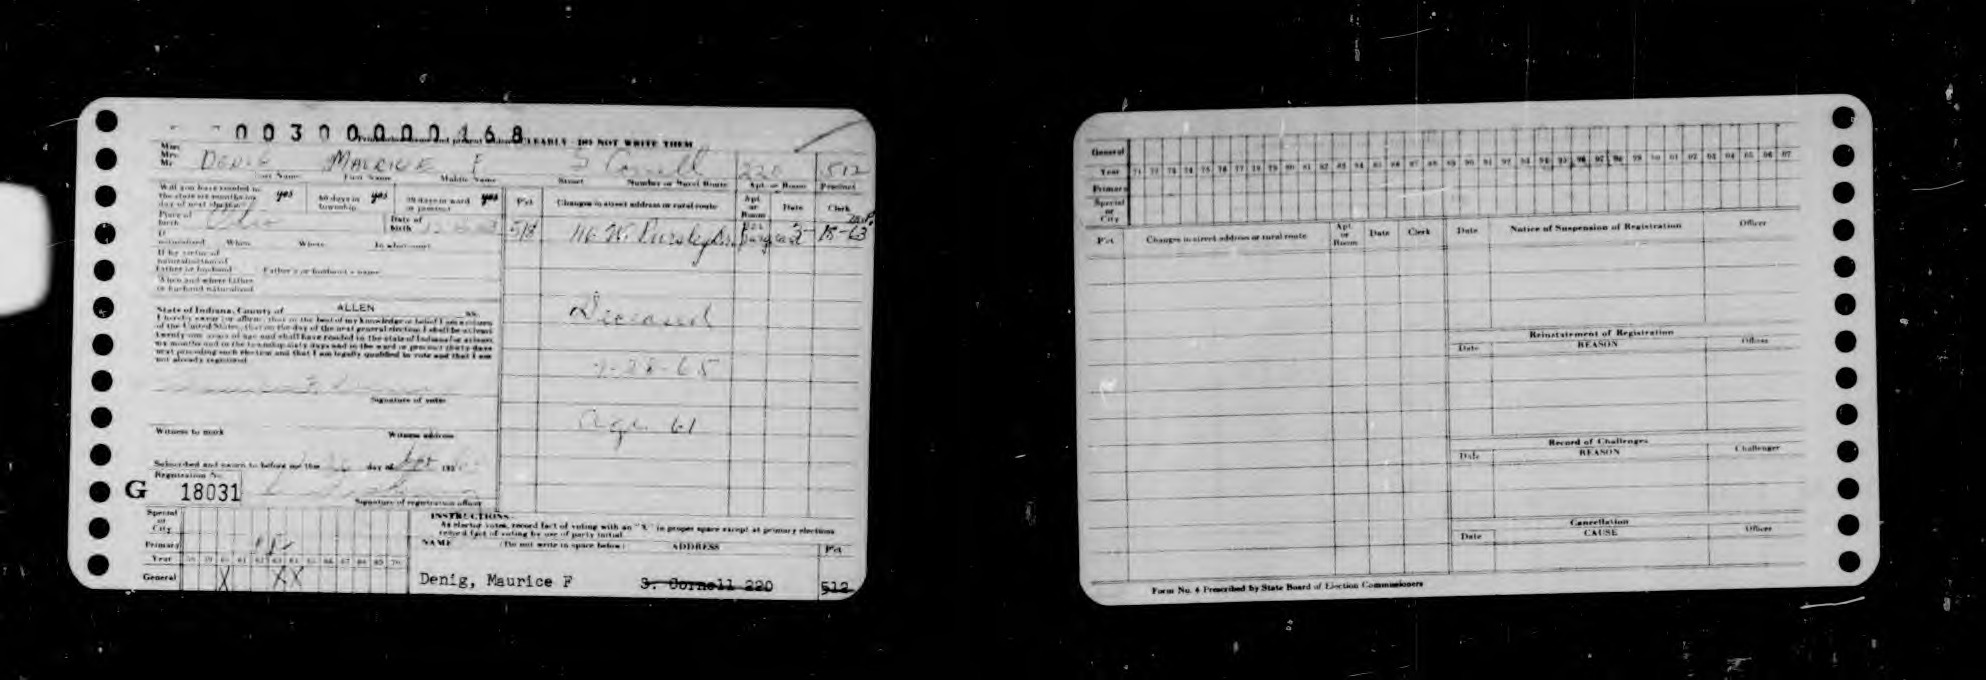 00300000168
CLEARLY - DO NOT WRITE THEM
Miss
Mrs.
Mr.
DENIG MAURICE F S Cornell 220 512
Last Name First Name Middle Name Street Number or Rural Route Apt. or Room Precinct
Will you have resided in the state six months on day of next election yes 60 days in township yes 30 days in ward or precinct yes
Pct Changes in street address or rural route Apt. or Room Date Clerk
Place of birth Ohio Date of birth
513 116 W. Pursley Dr. 15-63
If naturalized When Where In what court
If by virtue of naturalization of father or husband Father's or husband's name
When and where father or husband naturalized
State of Indiana, County of ALLEN ss.
I hereby swear (or affirm) that to the best of my knowledge or belief I am a citizen
of the United States, that on the day of the next general election I shall be at least
twenty-one years of age and shall have resided in the state of Indiana for at least
six months and in the township sixty days and in the ward or precinct thirty days
next preceding such election and that I am legally qualified to vote and that I am
not already registered.
Deceased
-28-65
Age 61
Signature of voter
Witness to mark Witness address
Subscribed and sworn to before me this day of Sept 195
Registration No.
G 18031
Signature of registration officer
Special or City
Primary
Year 58 59 60 61 62 63 64 65 66 67 68 69 70
General X X X
INSTRUCTIONS
As elector votes, record fact of voting with an "X" in proper space except at primary elections
record fact of voting by use of party initial.
NAME (Do not write in space below) ADDRESS Pct
Denig, Maurice F S. Cornell 220 512
General
Year 71 72 73 74 75 76 77 78 79 80 81 82 83 84 85 86 87 88 89 90 91 92 93 94 95 96 97 98 99 00 01 02 03 04 05 06 07
Primary
Special or City
Pct Changes in street address or rural route Apt. or Room Date Clerk
Date Notice of Suspension of Registration Officer
Reinstatement of Registration
Date REASON Officer
Record of Challenges
Date REASON Challenger
Cancellation
Date CAUSE Officer
Form No. 4 Prescribed by State Board of Election Commissioners